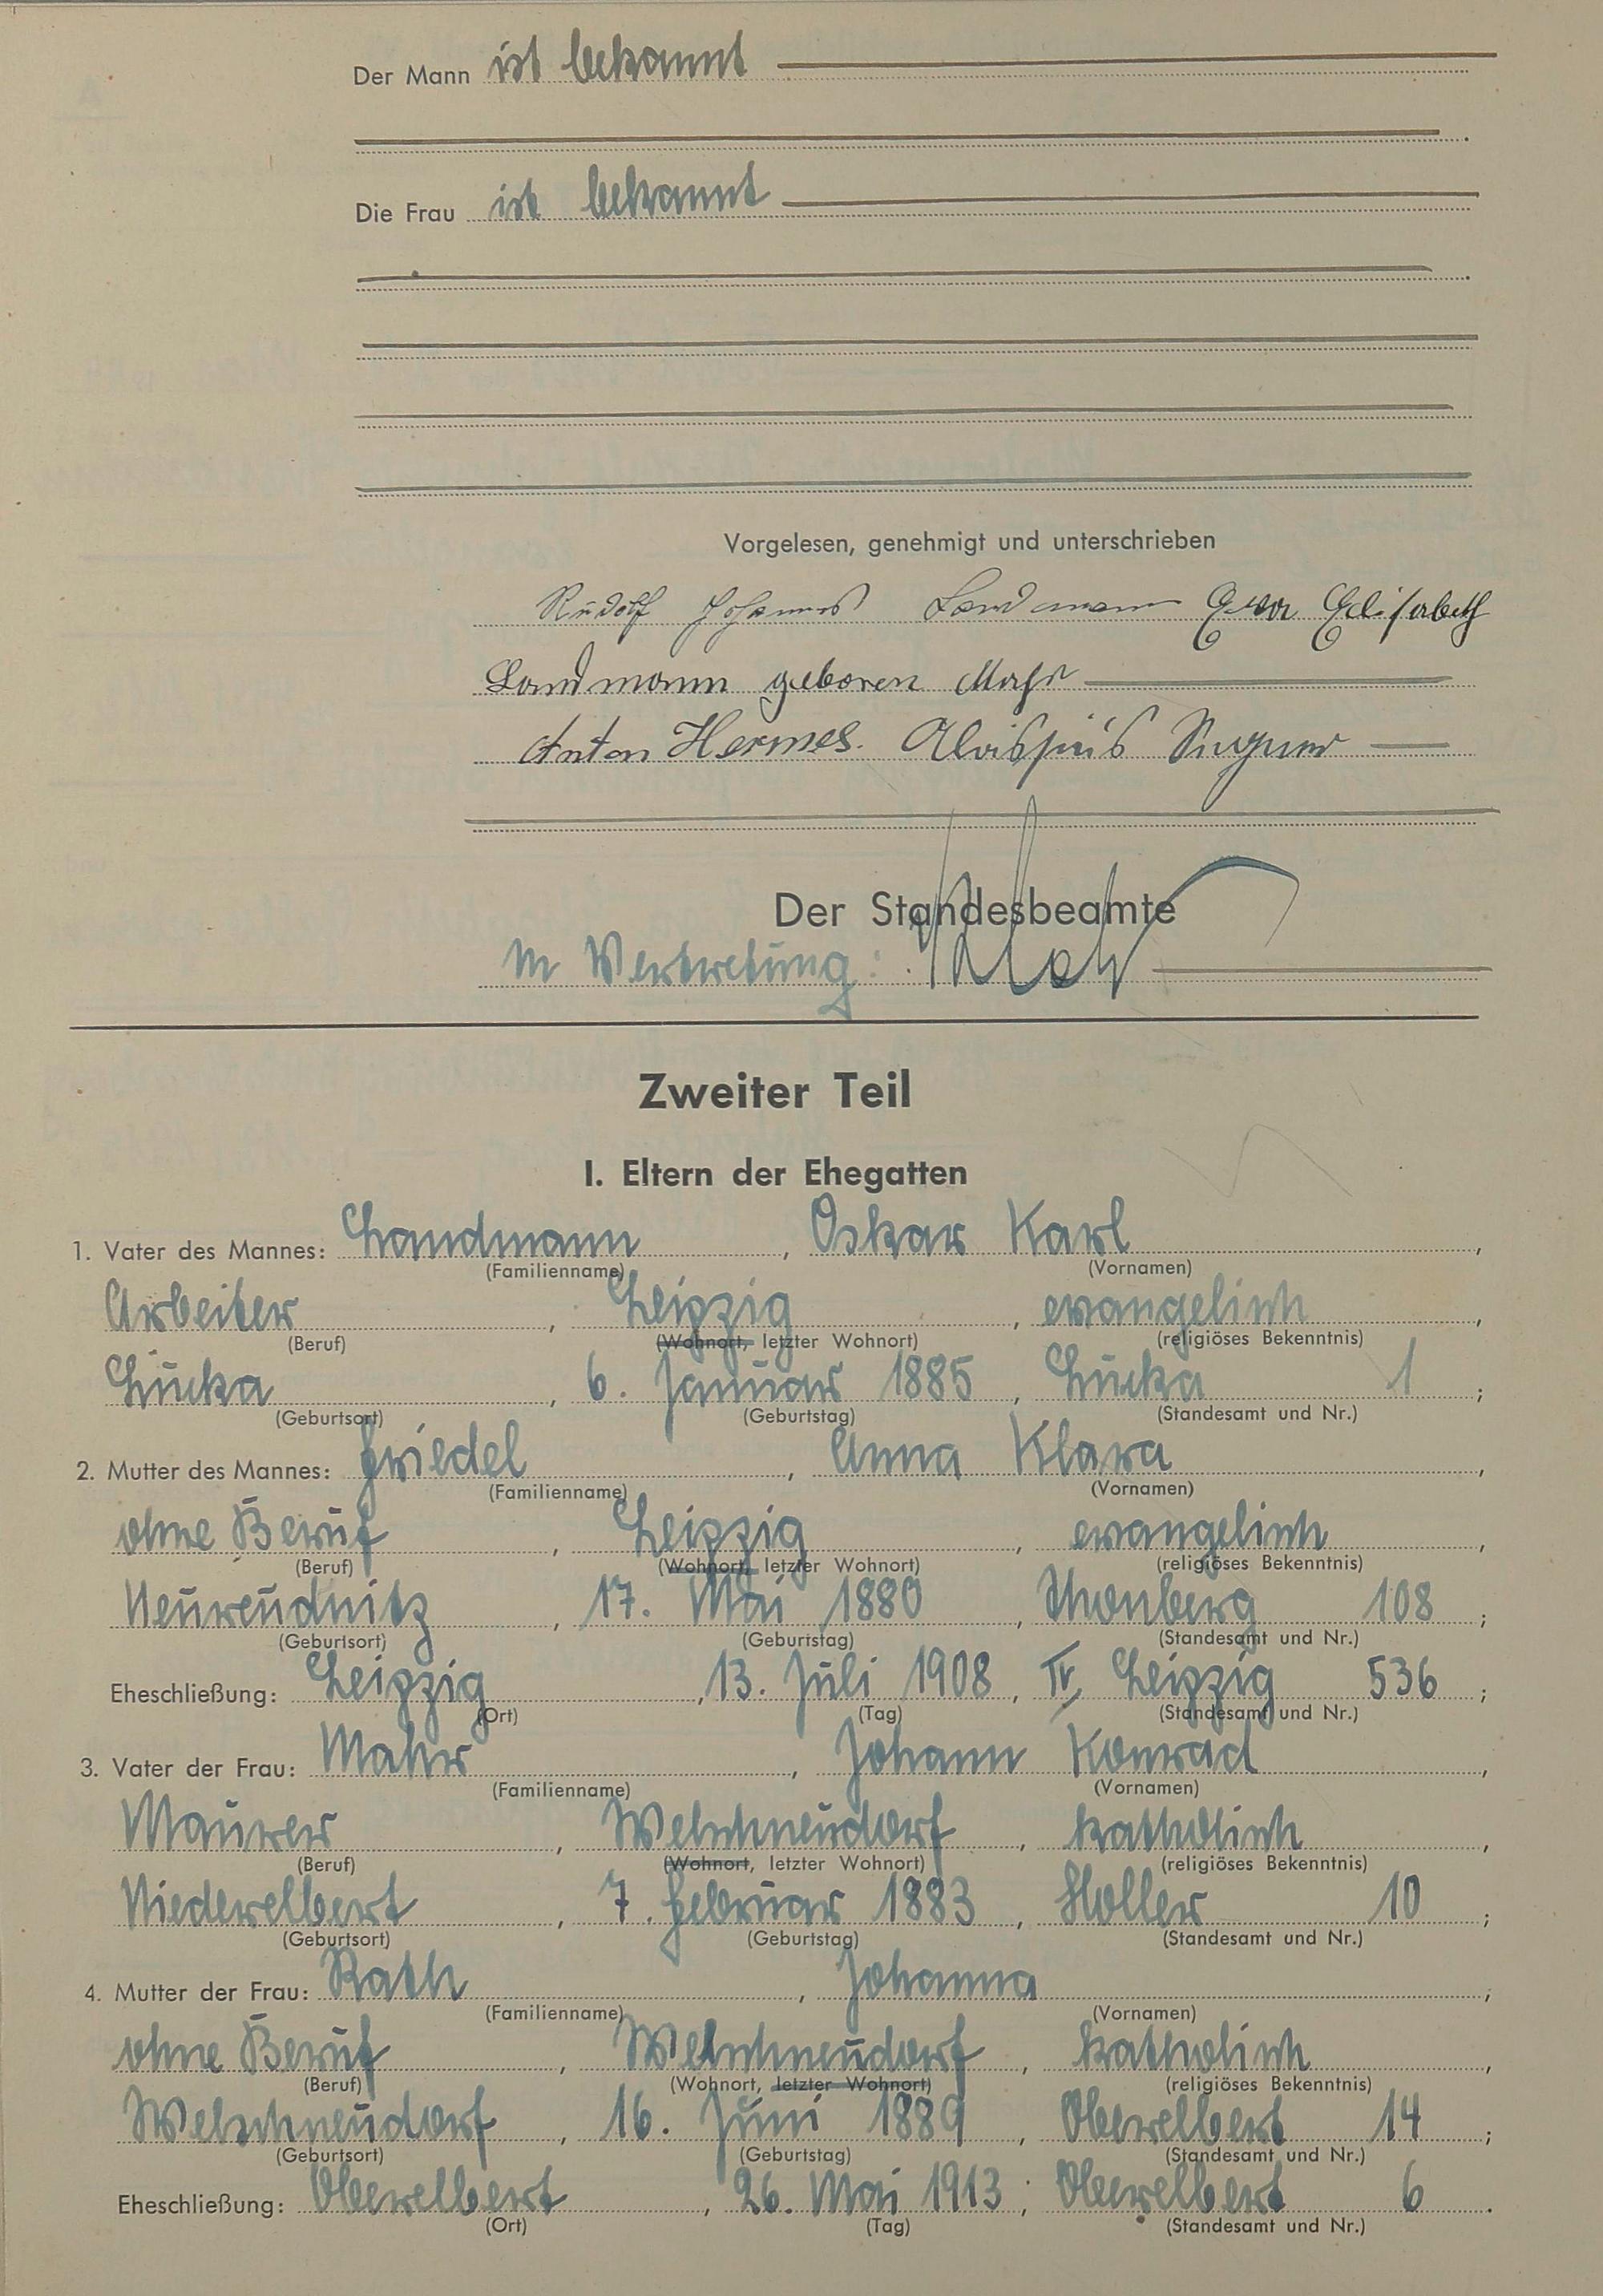 Der Mann ist bekannt
Die Frau ist bekannt
Vorgelesen, genehmigt und unterschrieben
Rudolf Johannes Landmann Eva Elisabeth
Landmann geboren Mahr
Anton Hermes. Aloispius
Der Standesbeamte
In Vertretung:
Zweiter Teil
I. Eltern der Ehegatten
1. Vater des Mannes: Landmann, Oskar Karl,
(Familienname) (Vornamen)
Arbeiter, Leipzig, evangelisch,
(Beruf) (Wohnort, letzter Wohnort) (religiöses Bekenntnis)
Lucka, 6. Januar 1885, Lucka 1;
(Geburtsort) (Geburtstag) (Standesamt und Nr.)
2. Mutter des Mannes: Friedel, Anna Klara,
(Familienname) (Vornamen)
ohne Beruf, Leipzig, evangelisch,
(Beruf) (Wohnort, letzter Wohnort) (religiöses Bekenntnis)
Neureudnitz, 17. Mai 1880, Thonberg 108;
(Geburtsort) (Geburtstag) (Standesamt und Nr.)
Eheschließung: Leipzig, 13. Juli 1908, Leipzig 536;
(Ort) (Tag) (Standesamt und Nr.)
3. Vater der Frau: Mahr, Johann Konrad,
(Familienname) (Vornamen)
Maurer, Welschneudorf, katholisch,
(Beruf) (Wohnort, letzter Wohnort) (religiöses Bekenntnis)
Niederelbert, 7. Februar 1883, Holler 10;
(Geburtsort) (Geburtstag) (Standesamt und Nr.)
4. Mutter der Frau: Rath, Johanna,
(Familienname) (Vornamen)
ohne Beruf, Welschneudorf, katholisch,
(Beruf) (Wohnort, letzter Wohnort) (religiöses Bekenntnis)
Welschneudorf, 16. Juni 1889, Oberelbert 14;
(Geburtsort) (Geburtstag) (Standesamt und Nr.)
Eheschließung: Oberelbert, 26. Mai 1913; Oberelbert 6.
(Ort) (Tag) (Standesamt und Nr.)